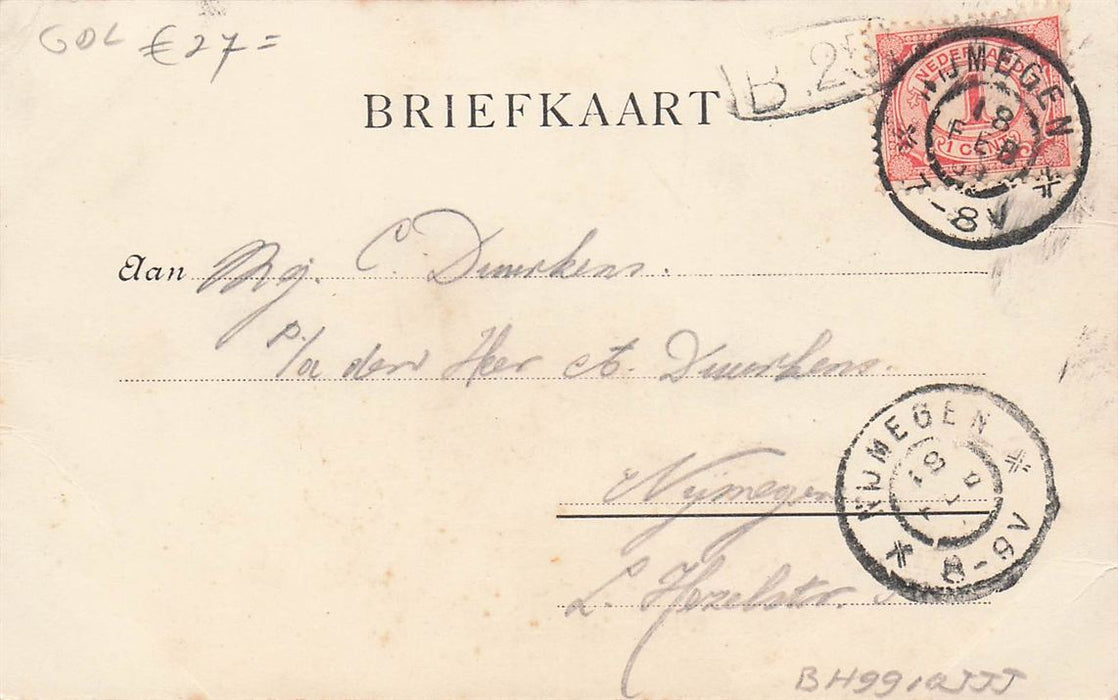 GDL € 27=
BRIEFKAART
B.25
NEDERLAND
1
1 CENT
NIJMEGEN
18 FEB
7-8V
Aan Mej. C. Duurkens.
p/a den Heer Duurkens.
Nijmegen
L. Hezelstr.
NIJMEGEN
18
8-9V